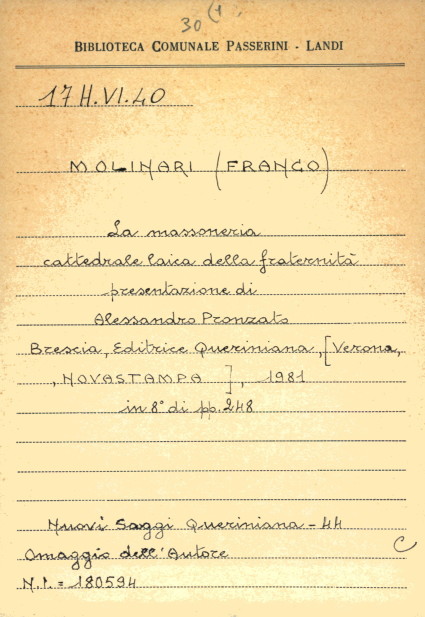 30 (1
BIBLIOTECA COMUNALE PASSERINI - LANDI
17H.VI.40
MOLINARI (FRANCO)
La massoneria
cattedrale laica della fraternità
presentazione di
Alessandro Pronzato
Brescia, Editrice Queriniana, [Verona,
, NOVASTAMPA ], 1981
in 8° di pp. 248
Nuovi Saggi Queriniana - 44
Omaggio dell'Autore
C
N.I. = 180594